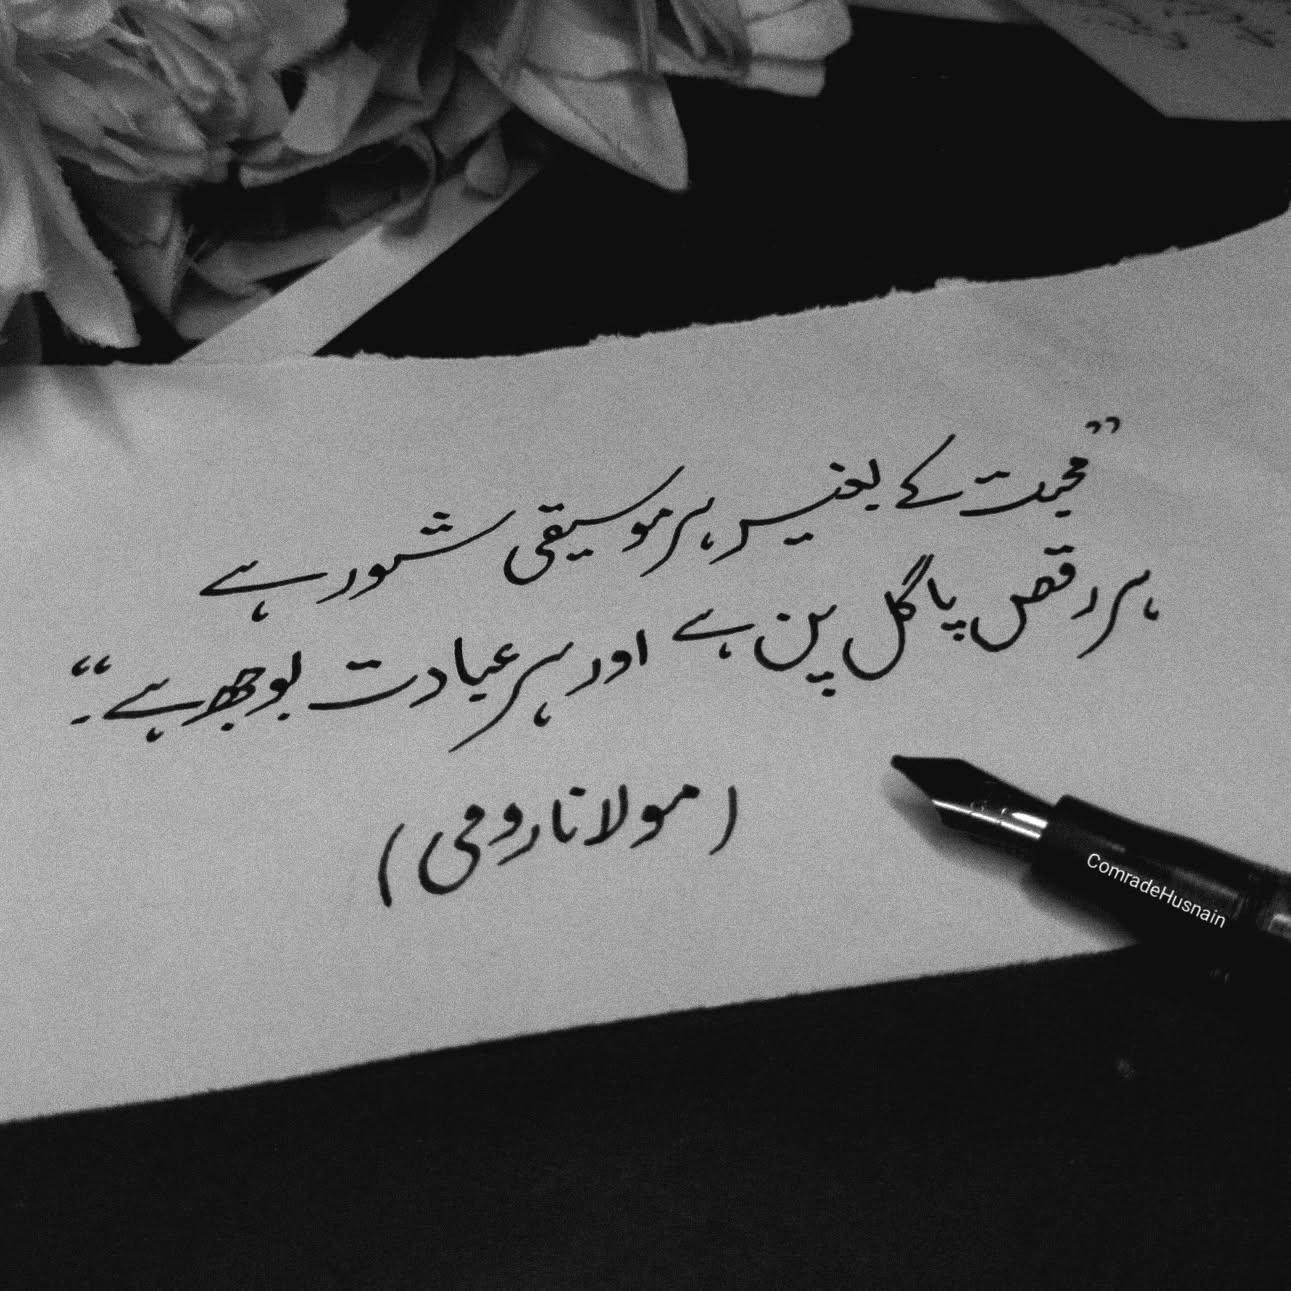 ”محبت کے بغیر ہر موسیقی شور ہے
ہر رقص پاگل پن ہے اور ہر عبادت بوجھ ہے۔“
(مولانا رومی)
ComradeHusnain